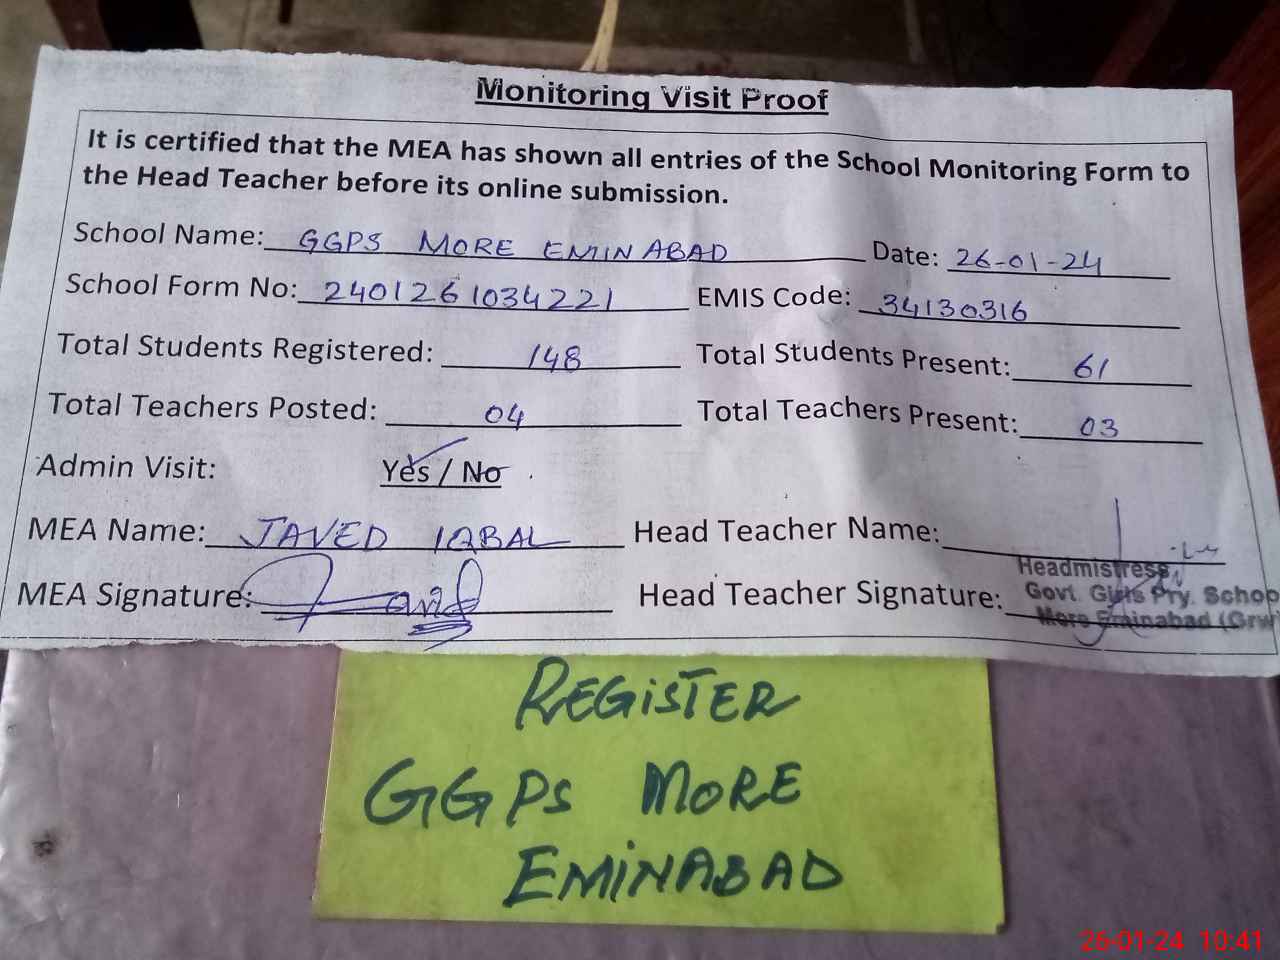 Monitoring Visit Proof
It is certified that the MEA has shown all entries of the School Monitoring Form to
the Head Teacher before its online submission.
School Name: GGPS MORE EMINABAD Date: 26-01-24
School Form No: 2401261034221 EMIS Code: 34130316
Total Students Registered: 148 Total Students Present: 61
Total Teachers Posted: 04 Total Teachers Present: 03
Admin Visit: Yes / No
MEA Name: JAVED IQBAL Head Teacher Name:
Headmistress
MEA Signature: Javid Head Teacher Signature: Govt. Girls Pry. School
More Eminabad (Grw)
REGISTER
GGPS MORE
EMINABAD
26-01-24 10:41